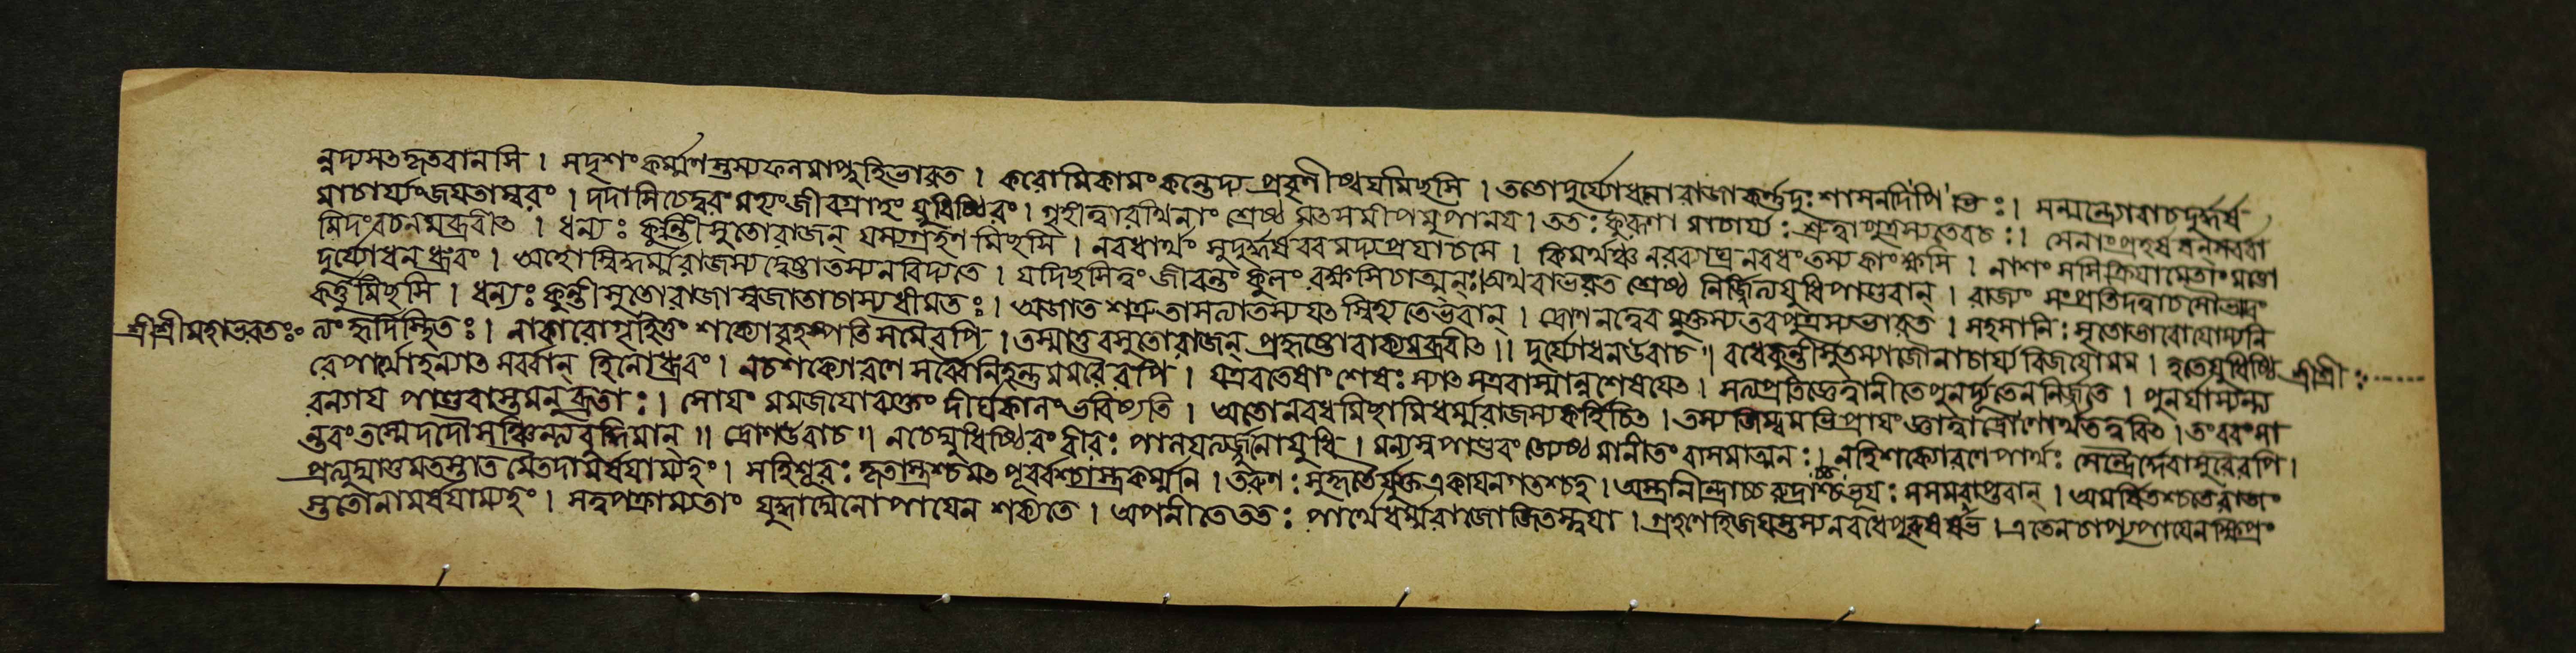 ন্নদ্যসৎকৃতবানসি । সদৃশং কর্ম্মণস্তস্যফলমাপ্নুহিভারত । করোমিকামং কন্তেদ্য প্রবৃণীষ্বযমিছসি । ততোদুর্য্যোধনোরাজাকর্ণ্ণদুঃশাসনদিপি তিঃ । সন্মন্ত্রেগবাচদুর্দ্ধর্ষ
মাচার্য্যংজযতাম্বরং । দদাসিচেদ্বরংমহ্যংজীবগ্রাহং যুধিষ্ঠিরং । গৃহীত্বারথিনাং শ্রেষ্ঠ মৎসমীপমুপানয । ততঃ কুরূণা মাচার্য্যঃ শ্রুত্বাপুত্রস্যতেবচঃ । সেনাংপ্রহর্ষযন্সর্ব্বা
মিদংবচনমব্রবীৎ । ধন্যঃ কুন্তীসুতোরাজন্ যস্যগ্রহণ মিছসি । নবধার্থং সুদুর্দ্ধর্ষবরমদ্যপ্রযাচসে । কিমর্থঞ্চ নরব্যাঘ্র নবধংতস্যকাংক্ষসি । নাশং সসিক্রিযামেতাংমত্তো
দুর্য্যোধনধ্রুবং । অহোস্বিদ্ধর্ম্মরাজস্যদ্বেষ্টাতস্যনবিদ্যতে । যদিছসিত্বং জীবন্তং কুলং রক্ষসিচাত্মনঃ। অথবাভরত শ্রেষ্ঠ নির্জ্জিত্যযুধিপাণ্ডবান্ । রাজ্যং সংপ্রতিদত্বাচসৌভ্রাত্রং
কর্ত্তুমিছসি । ধন্যঃ কুন্তীসুতোরাজাসুজাতাচাস্যধীমতঃ । অজাত শত্রুতাসত্যাতস্যযৎস্নিহ্যতেভবান্ । দ্রোণনত্বেব মুক্তস্যতবপুত্রস্যভারত । সহসানিঃসৃতোভাবোযোস্যনি
শ্রীশ্রীমহাভরতঃ॰ ত্যংহৃদিস্থিতঃ । নাকারোগূহিতুং শক্যোবৃহস্পতিসমৈরপি । তস্মাত্তবসুতোরাজন্ প্রহৃষ্টোবাক্যমব্রবীৎ ॥ দুর্য্যোধনউবাচ ॥ বধেকুন্তীসুতস্যাজৌনাচার্য্যবিজযোমম । হতেযুধিষ্ঠি শ্রীশ্রীঃ
রেপার্থাহন্যাৎসর্ব্বান্ হিনোধ্রুবং । নচশক্যোরণে সর্ব্বৈনিহন্তুমমরৈরপি । যত্রবতেষাং শেষঃ স্যাৎসত্রবাস্মান্নশেষযেৎ । সত্যপ্রতিজ্ঞেত্বানীতেপুনর্দ্যূতেননির্জ্জতে । পুনর্যাস্যন্ত্য
রনগয পাণ্ডবাস্তমনুব্রতাঃ । সোযং মমজযোব্যক্তং দীর্ঘকালংভবিষ্যতি । অতোনবধমিছামিধর্ম্মরাজস্যকর্হিচিৎ । তস্যজিহ্মমভিপ্রাযং জ্ঞাত্বাদ্রৌণোর্থতত্ববিৎ । তংবরংসা
ন্তরংতস্মৈদদৌসঞ্চিন্ত্যবুদ্ধিমান্ ॥ দ্রোণউবাচ ॥ নচেযুধিষ্ঠিরং বীরঃ পালযত্যর্জ্জুনোযুধি । মন্যস্বপাণ্ডবং জ্যেষ্ঠ মানীতং বাসমাত্মনঃ । নহিশক্যোরণেপার্থঃ সেন্দ্রৈর্দ্দেবাসুরৈরপি ।
প্রত্যুদ্যাতুমতস্তাত মৈতদামর্ষযাম্যহং । সহিশূরঃ কৃতাস্ত্রশ্চমৎ পূর্ব্বশ্চাস্ত্রকর্ম্মনি । তরুণঃ সুকৃতৈর্যুক্ত একাযনগতশ্চহ । অস্ত্রানীন্দ্রাচ্চ রুদ্রাশ্চ ভূযঃ সসমবাপ্তবান্ । অমর্ষিতশ্চতেরাজং
স্ততোনামর্ষযাম্যহং । সত্বপক্রাম্যতাং যুদ্ধাদ্যেনোপাযেন শক্যতে । অপনীতেততঃ পার্থেধর্ম্মরাজোজিতস্ত্বযা । গ্রহণেহিজযস্তস্যনবধেপুরুষর্ষভ । এতেনচাপ্যুপাযেনক্ষিপ্রং